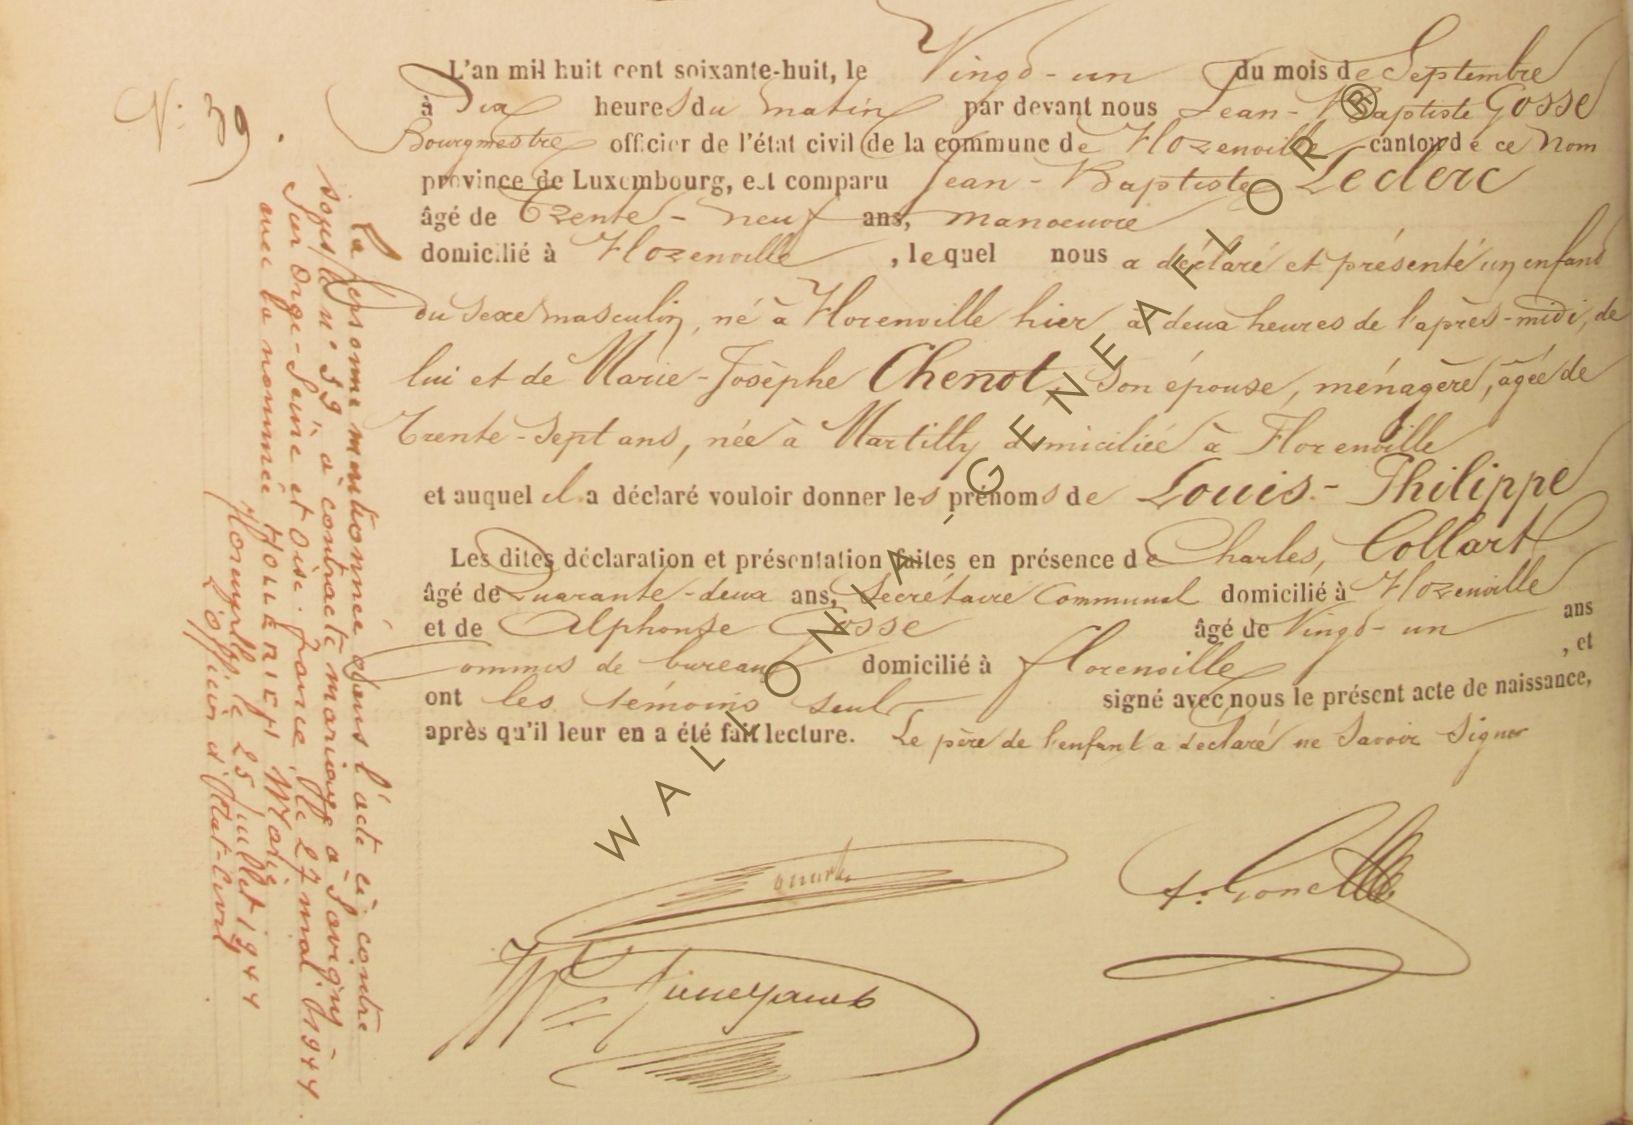 N° 39.
L'an mil huit cent soixante-huit, le Vingt-un du mois de Septembre
à Dix heures du matin par devant nous Jean-Baptiste Gosse
Bourgmestre officier de l'état civil de la commune de Florenville canton de ce nom
province de Luxembourg, est comparu Jean-Baptiste Leclerc
âgé de Trente-neuf ans, manoeuvre
domicilié à Florenville, lequel nous a déclaré et présenté un enfant
du sexe masculin, né à Florenville hier à deux heures de l'après-midi, de
lui et de Marie-Josèphe Chenot, son épouse, ménagère, âgée de
Trente-sept ans, née à Martilly domiciliée à Florenville
et auquel il a déclaré vouloir donner les prénoms de Louis-Philippe
Les dites déclaration et présentation faites en présence de Charles, Collart
âgé de Quarante-deux ans, Secrétaire Communal domicilié à Florenville
et de Alphonse Gosse âgé de Vingt-un ans
Commis de bureau domicilié à florenville, et
ont les témoins seuls signé avec nous le présent acte de naissance,
après qu'il leur en a été fait lecture. Le père de l'enfant a déclaré ne savoir signer
La personne mentionnée dans l'acte ci-contre
sous le n° 39 a contracté mariage à Savigny-
Sur Orge-Seine et Oise. france, le 27 mai 1944.
avec la nommée Marie
Florenville le 25 juillet 1944
L'officier d'Etat-Civil
WALLONIA-GENEAFLOR®